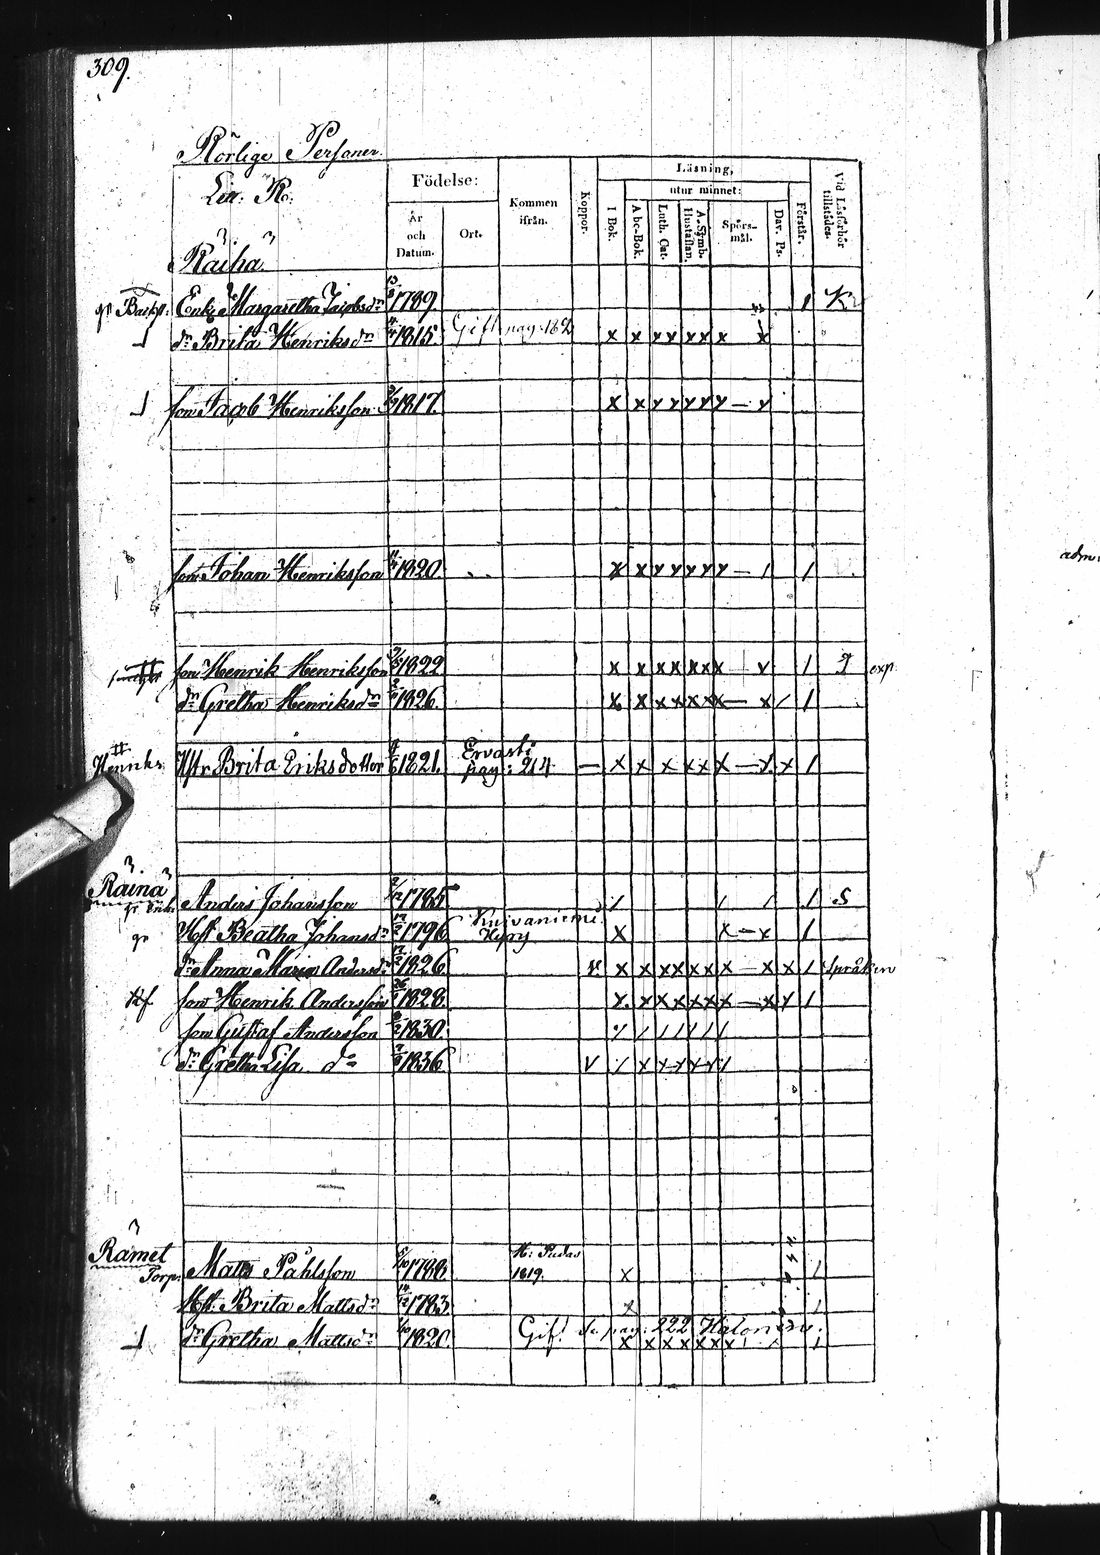 309.
Rörlige Personer.
Litt: R:
Födelse:
År och Datum.
Ort.
Kommen ifrån.
Koppor.
Läsning,
utur minnet:
I Bok.
Abc-Bok.
Luth. Cat.
A. Symb. Hustaflan.
Spörsmål.
Dav. Ps.
Förstår.
Vid Läsförhör tillstädes.
Räihä
Enk: Margaretha Jacobsdr 1789.
dr Brita Henriksdr 1815. Gift pag: 162 x x x x x x x x
son Jacob Henriksson 1817. x x x x x x x x — x
son Johan Henriksson 1820. x x x x x x x — / /
son Henrik Henriksson 1822 x x x x x x x — x / exp
dr Gretha Henriksdr 1826. x x x x x x x — x / /
Henriks Hstr Brita Eriksdotter 1821. Ervasti pag: 214 — x x x x x x — x x /
Räinä
Anders Johansson 2/12 1785 / / / / S
Hst Beatha Johansdr 1796 Kuivaniemi x x — x /
dr Anna Maria Andersdr 1826 x x x x x x x — x x / språken
son Henrik Andersson 1828. x x x x x x x — x x /
son Gustaf Andersson 1830. / / / / / / /
dr Gretha Lisa do 1836 v / x x x x x /
Rämet
Torp. Matts Påhlsson 5/10 1788 H: Pudas 1819. x /
Hst. Brita Mattsdr 1783 x /
dr Gretha Mattsdr 1820. Gift pag: 222 Halonen x x x x x x x /
adm.